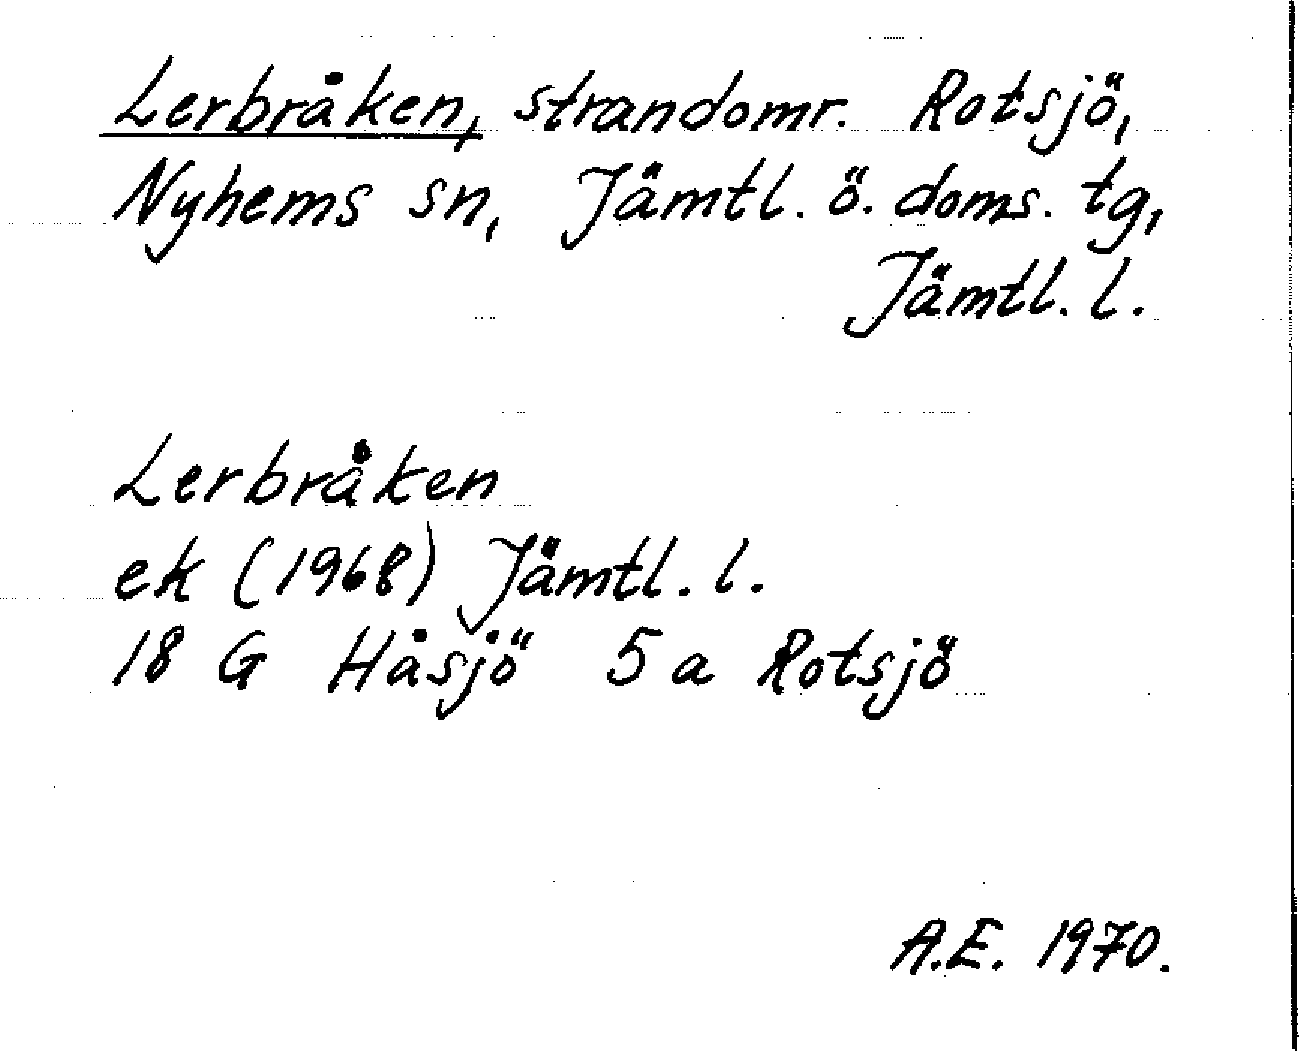 Lerbråken, strandomr. Rotsjö,
Nyhems sn, Jämtl. ö. doms. tg,
Jämtl. l.
Lerbråken
ek (1968) Jämtl. l.
18 G Håsjö 5a Rotsjö
A.E. 1970.